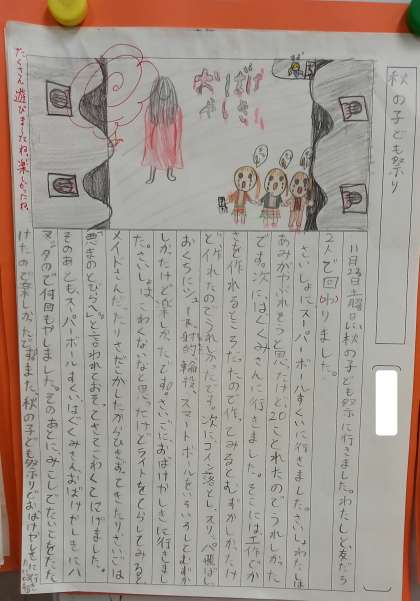 秋の子ども祭り
11月23日土曜日に秋の子ども祭に行きました。わたしと、友だち
2人で回りました。
さいしょにスーパーボールすくいに行きました。さいしょわたしは
あみがやぶれそうと思ったけど、20ことれたのでうれしかった
です。次にはぐくみさんに行きました。そこには工作でか
さを作れるところだったので作ってみるとむずかしかったけ
ど作れたのでうれしかったです。次にコイン落とし、スリッパ飛ばし
おくちにシュート、射的、輪投、スマートボールをいろいろしてむずか
しかたけど楽しかったです。さいごにおばけやしきに行きまし
た。さいしょは、こわくないなと思ったけどライトをてらしてみると
メイドさんだったりさだこがしたからひきおってきたりさいごは
「悪まのとびらへ」と言われておそってきてこわくてにげました。
そのあともスーパーボールすくいはぐくみさんおばけやしきにハ
マッタので何回もやしました。そのあとに、みこしでたいこをたた
けたので楽しかったです。また、秋の子ども祭りでおばけやしきに行
おばけ
やしき
たくさん遊びましたね。楽しかったね。